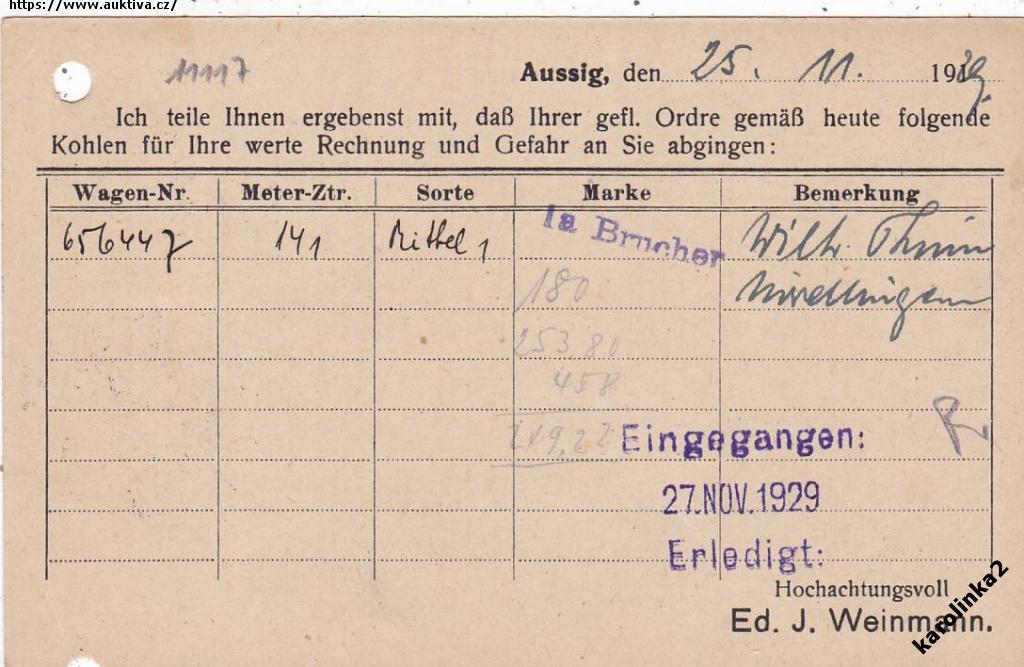 https://www.auktiva.cz/
11117
Aussig, den 25. 11. 1929.
Ich teile Ihnen ergebenst mit, daß Ihrer gefl. Ordre gemäß heute folgende
Kohlen für Ihre werte Rechnung und Gefahr an Sie abgingen:
Wagen-Nr. Meter-Ztr. Sorte Marke Bemerkung
656447 141 Mittel 1 Ia Brucher Wilh.
180
253 80
458
Eingegangen:
27. NOV. 1929
Erledigt:
Hochachtungsvoll
Ed. J. Weinmann.
karolinka2